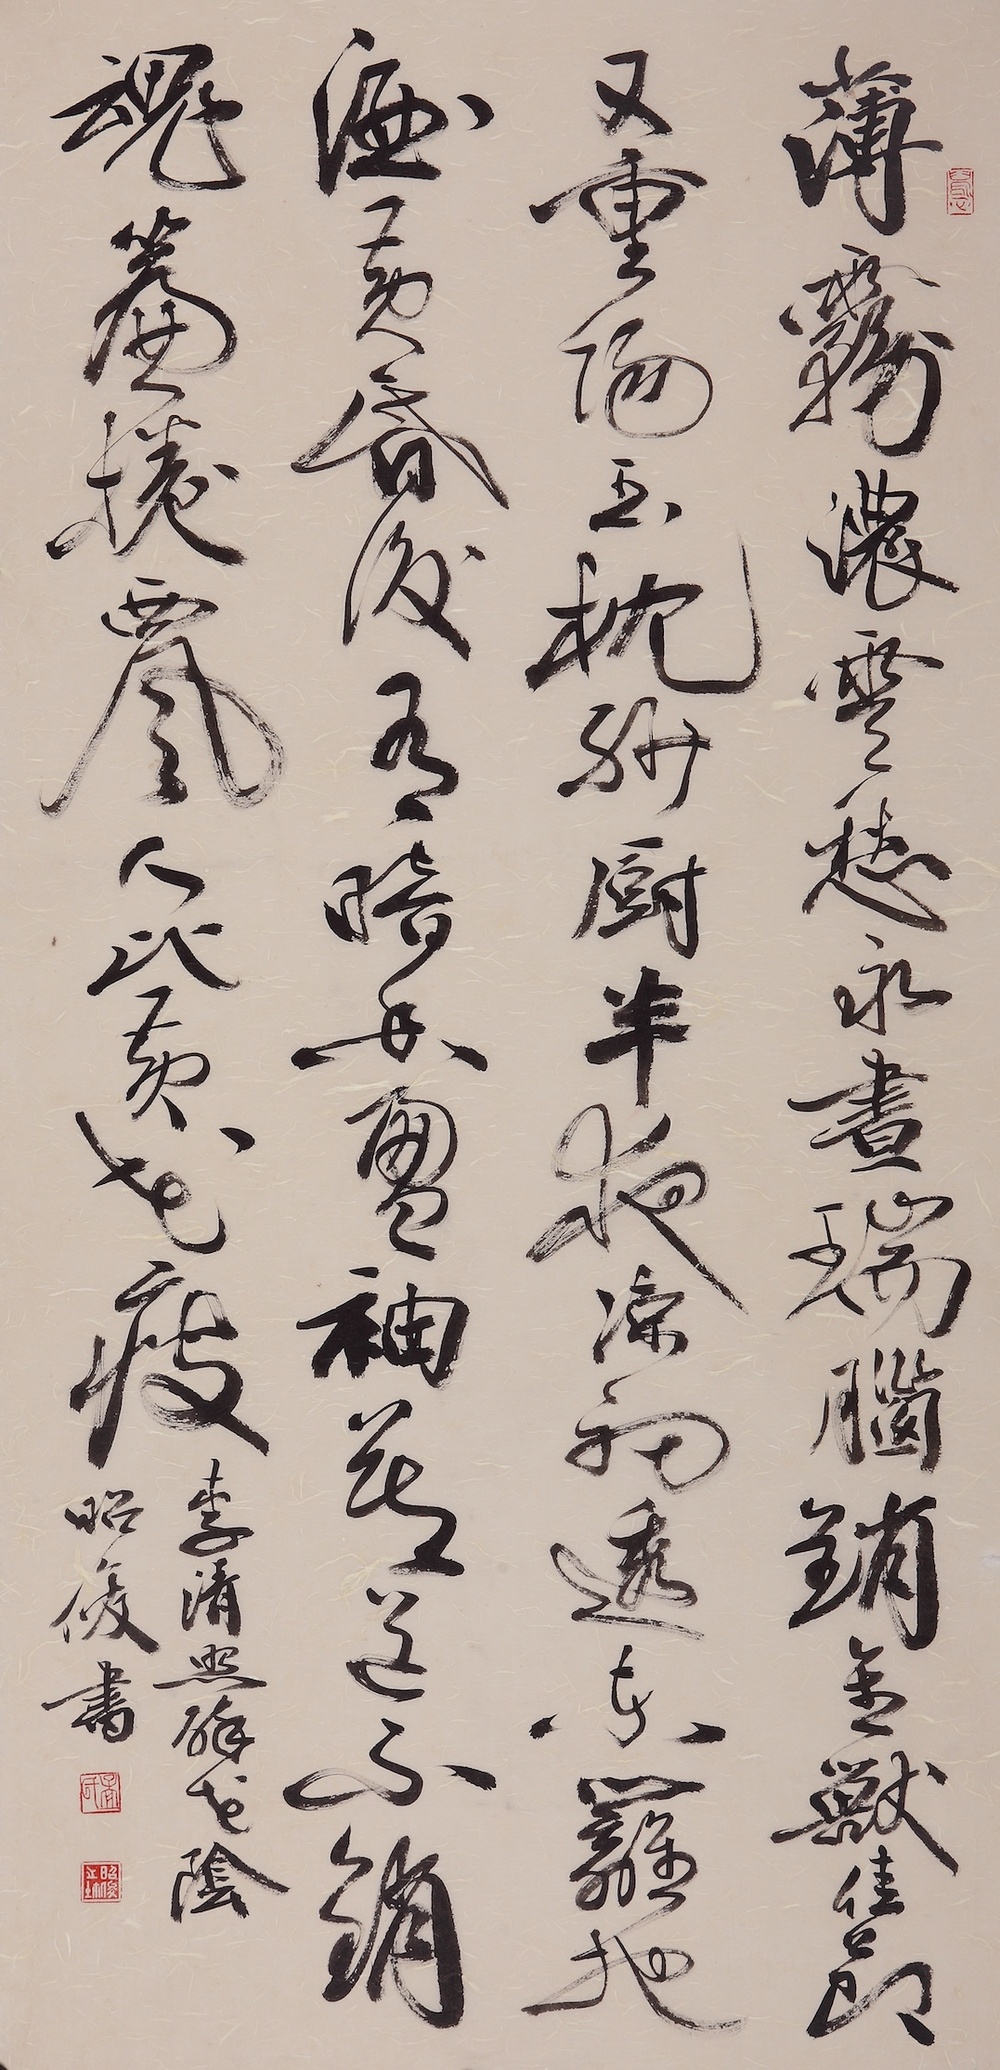 薄霧濃雲愁永晝瑞腦銷金獸佳節
又重陽玉枕紗厨半夜凉初透東籬把
酒黃昏後有暗香盈袖莫道不銷
魂簾捲西風人比黃花瘦
李清照醉花陰
昭俊書